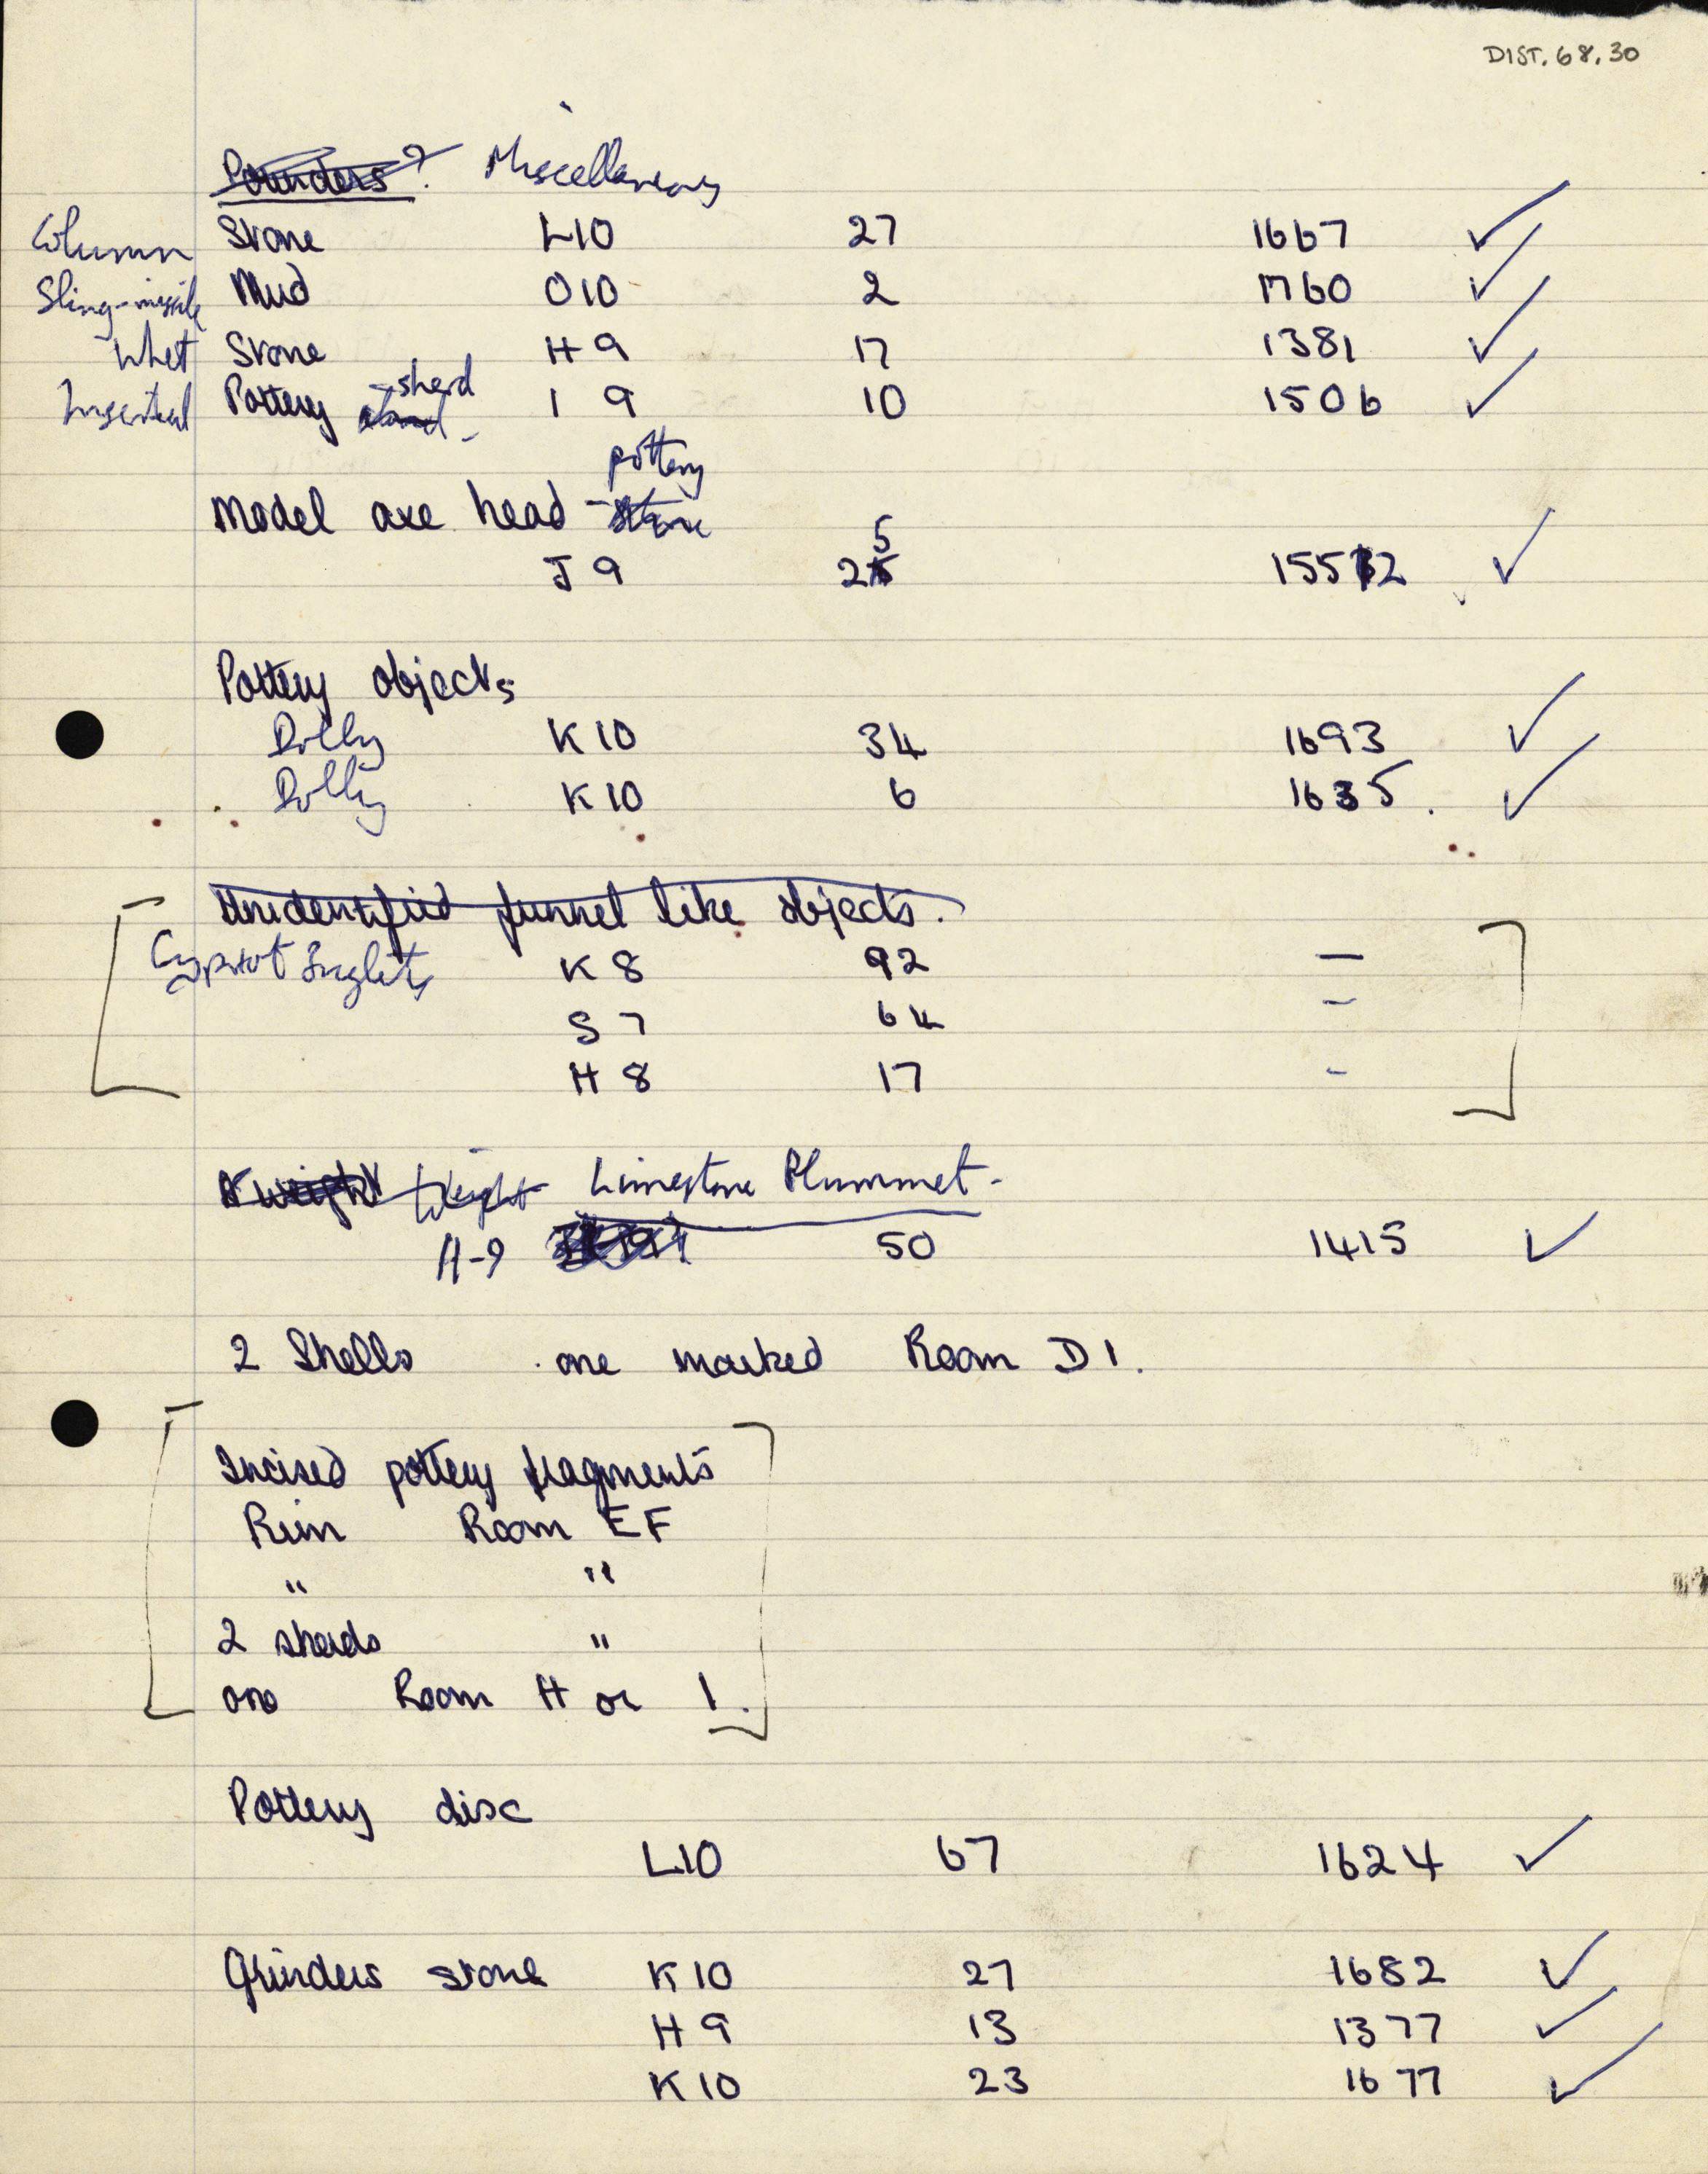 DIST. 68.30
Pounders? Miscellaneous
Column Stone L10 27 1667 ✓
Sling-missile Mud O10 2 1760 ✓
Whet Stone H9 17 1381 ✓
Inscribed Pottery -sherd I 9 10 1506 ✓
pottery
Model axe head - stone
J9 25 5 15512 ✓
Pottery objects
Dolly K10 34 1693 ✓
Dolly K10 6 1635. ✓
Unidentified funnel like objects.
[Cypriot Juglets K8 92 — ]
S7 64 –
H8 17 -
A weight Weight Limestone Plummet -
H-9 50 1415 ✓
2 Shells one marked Room D1.
[Incised pottery fragments
Rim Room EF
" "
2 sherds "
one Room H or 1.]
Pottery disc
L10 67 1624 ✓
Grinders stone K10 27 1682 ✓
H9 13 1377 ✓
K10 23 1677 ✓